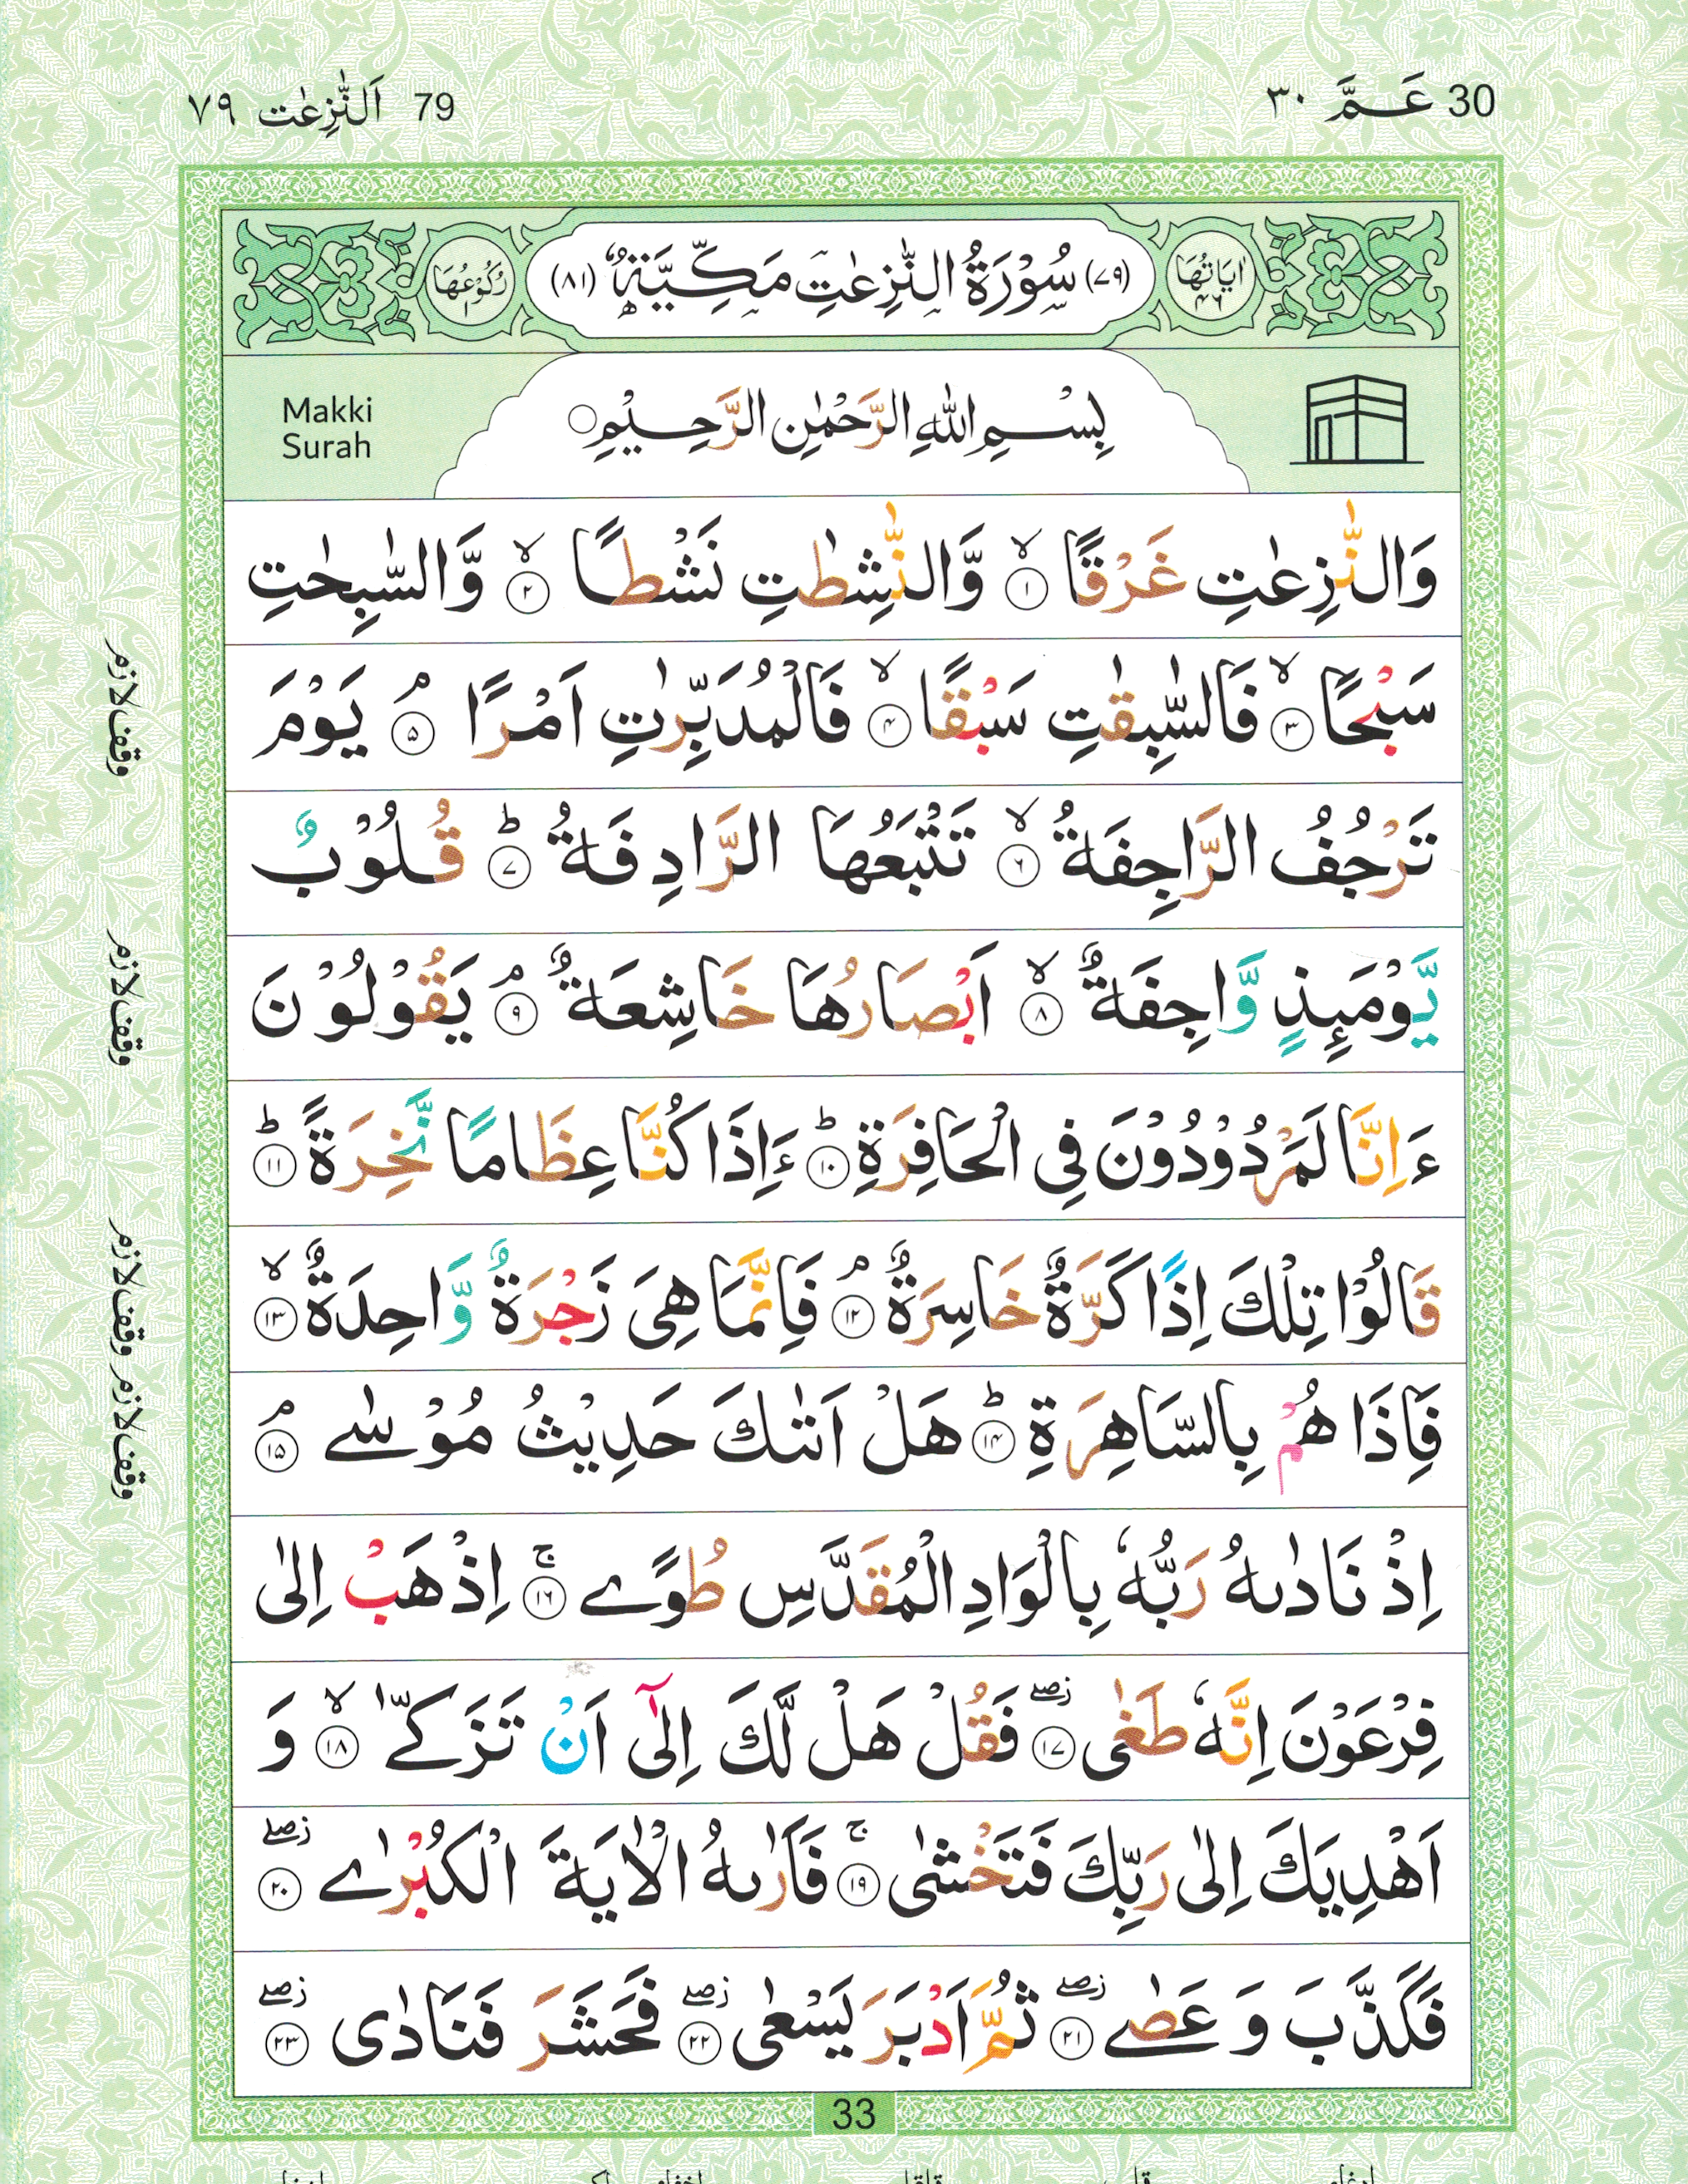 30 عَـمَّ ٣٠
79 اَلنّٰزِعٰت ٧٩
اٰيَاتُهَا ٤٦
(٧٩) سُوْرَةُ النّٰزِعٰتِ مَكِّيَّةٌ (٨١)
رُكُوْعُهَا ٢
بِسْمِ اللّٰهِ الرَّحْمٰنِ الرَّحِيْمِ ○
Makki
Surah
وَالنّٰزِعٰتِ غَرْقًا ۙ ١ وَّالنّٰشِطٰتِ نَشْطًا ۙ ٢ وَّالسّٰبِحٰتِ
سَبْحًا ۙ ٣ فَالسّٰبِقٰتِ سَبْقًا ۙ ٤ فَالْمُدَبِّرٰتِ اَمْرًا ۘ ٥ يَوْمَ
تَرْجُفُ الرَّاجِفَةُ ۙ ٦ تَتْبَعُهَا الرَّادِفَةُ ؕ ٧ قُلُوْبٌ
يَّوْمَىِٕذٍ وَّاجِفَةٌ ۙ ٨ اَبْصَارُهَا خَاشِعَةٌ ۘ ٩ يَقُوْلُوْنَ
ءَاِنَّا لَمَرْدُوْدُوْنَ فِى الْحَافِرَةِ ؕ ١٠ ءَاِذَا كُنَّا عِظَامًا نَّخِرَةً ؕ ١١
قَالُوْا تِلْكَ اِذًا كَرَّةٌ خَاسِرَةٌ ۘ ١٢ فَاِنَّمَا هِىَ زَجْرَةٌ وَّاحِدَةٌ ۙ ١٣
فَاِذَا هُمْ بِالسَّاهِرَةِ ؕ ١٤ هَلْ اَتٰىكَ حَدِيْثُ مُوْسٰى ۘ ١٥
اِذْ نَادٰىهُ رَبُّهٗ بِالْوَادِ الْمُقَدَّسِ طُوًى ۚ ١٦ اِذْهَبْ اِلٰى
فِرْعَوْنَ اِنَّهٗ طَغٰى ۖ ز ١٧ فَقُلْ هَلْ لَّكَ اِلٰٓى اَنْ تَزَكّٰى ۙ ١٨ وَ
اَهْدِيَكَ اِلٰى رَبِّكَ فَتَخْشٰى ۚ ١٩ فَاَرٰىهُ الْاٰيَةَ الْكُبْرٰى ۖ ز ٢٠
فَكَذَّبَ وَ عَصٰى ۖ ز ٢١ ثُمَّ اَدْبَرَ يَسْعٰى ۖ ز ٢٢ فَحَشَرَ فَنَادٰى ۖ ز ٢٣
وقف لازم
وقف لازم
وقف لازم وقف لازم
33